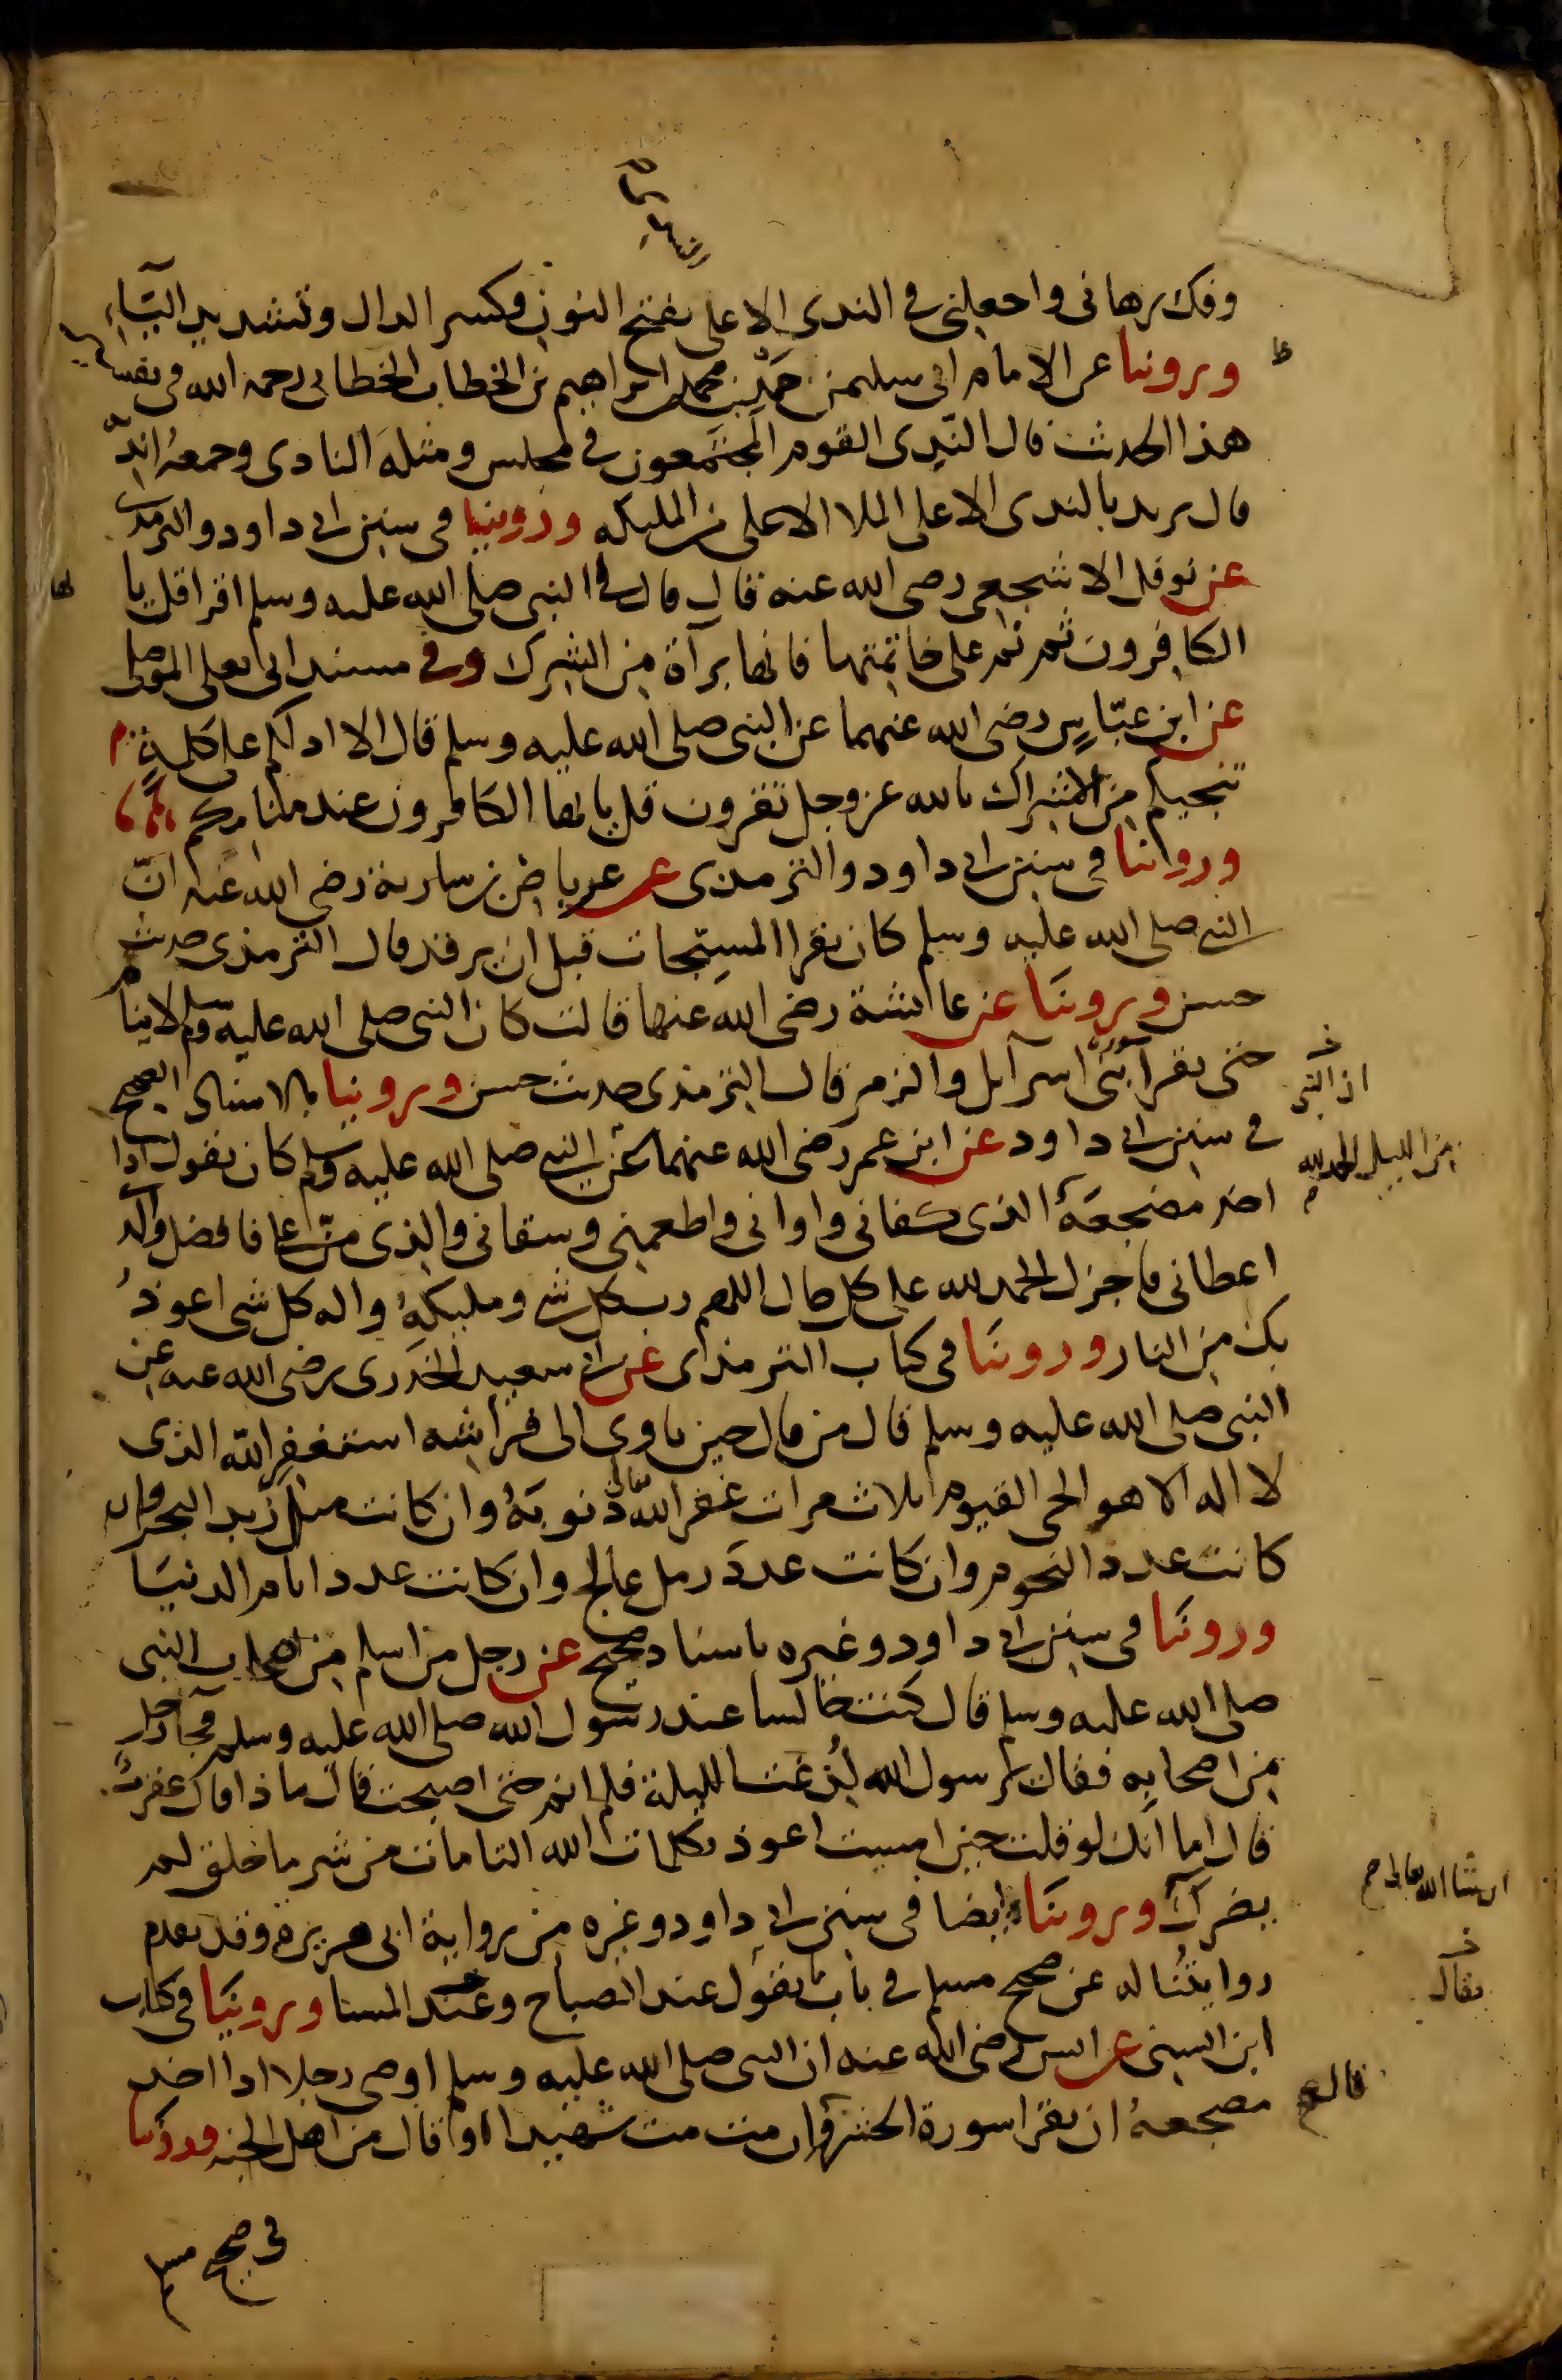 وفك رهانى واجعلنى فى الندى الاعلى بفتح النون وكسر الدال وتشديد اليآء
وروينا عن الامام ابى سليمن حمد بن محمد بن ابراهيم بن الخطاب الخطابى رحمه الله فى تفسير
هذا الحديث قال الندى القوم المجتمعون فى مجلس ومثله النادى وجمعه اندية
قال يريد بالندى الاعلى الملا الاعلى من المليكه وروينا فى سنن ابى داود والترمذى
عن نوفل الاشجعى رضى الله عنه قال قال لى النبى صلى الله عليه وسلم اقرا قل يا
ايها
الكافرون ثم نم على خاتمتها فانها برآة من الشرك وفى مسند ابى يعلى الموصلى
عن ابن عبّاس رضى الله عنهما عن النبى صلى الله عليه وسلم قال الا ادلكم على كلمة
تنجيكم من الاشراك بالله عز وجل تقرون قل يا ايها الكافرون عند منامكم
وروينا فى سنن ابى داود والترمذى عن عرباض بن سارية رضى الله عنه انّ
النبى صلى الله عليه وسلم كان يقرا المسبّحات قبل ان يرقد قال الترمذى حديث
حسن وروينا عن عائشة رضى الله عنها قالت كان النبى صلى الله عليه وسلم لا ينام
حتى يقرا بنى اسرآيل والزمر قال الترمذى حديث حسن وروينا بالاسناد الصحيح
فى سنن ابى داود عن ابن عمر رضى الله عنهما عن النبى صلى الله عليه وسلم كان يقول اذا
من الليل الحمد لله
اخذ مضجعه الذى كفانى واوانى واطعمنى وسقانى والذى منّ على فافضل والذى
اعطانى فاجزل الحمد لله على كل حال اللهم رب كل شى ومليكه واله كل شى اعوذ
بك من النار وروينا فى كتاب الترمذى عن ابى سعيد الخدرى رضى الله عنه عن
النبى صلى الله عليه وسلم قال من قال حين ياوى الى فراشه استغفر الله الذى
لا اله الا هو الحى القيوم ثلاث مرات غفر الله تعالى ذنوبه وان كانت مثل زبد البحر وان
كانت عدد النجوم وان كانت عدد رمل عالج وان كانت عدد ايام الدنيا
وروينا فى سنن ابى داود وغيره باسناد صحيح عن رجل من اسلم من اصحاب النبى
صلى الله عليه وسلم قال كنت جالسا عند رسول الله صلى الله عليه وسلم فجآ رجل
من اصحابه فقال يرسول الله لدغت الليلة فلم انم حتى اصبحت قال ماذا قال عقرب
قال اما انك لو قلت حين امسيت اعوذ بكلمات الله التامات من شر ما خلق لم
ان شا الله تعالى صح
يضرك وروينا ايضا فى سنن ابى داود وغيره من رواية ابى هريرة وقد تقدم
روايتنا له عن صحيح مسلم فى باب ما يقول عند الصباح وعند المسا وروينا فى كتاب
يقال
ابن السنى عن انس رضى الله عنه ان النبى صلى الله عليه وسلم اوصى رجلا اذا اخذ
مضجعه ان يقرا سورة الحشر وان مت مت شهيدا او قال من اهل الجنه وروينا
قال
فى صحيح مسلم